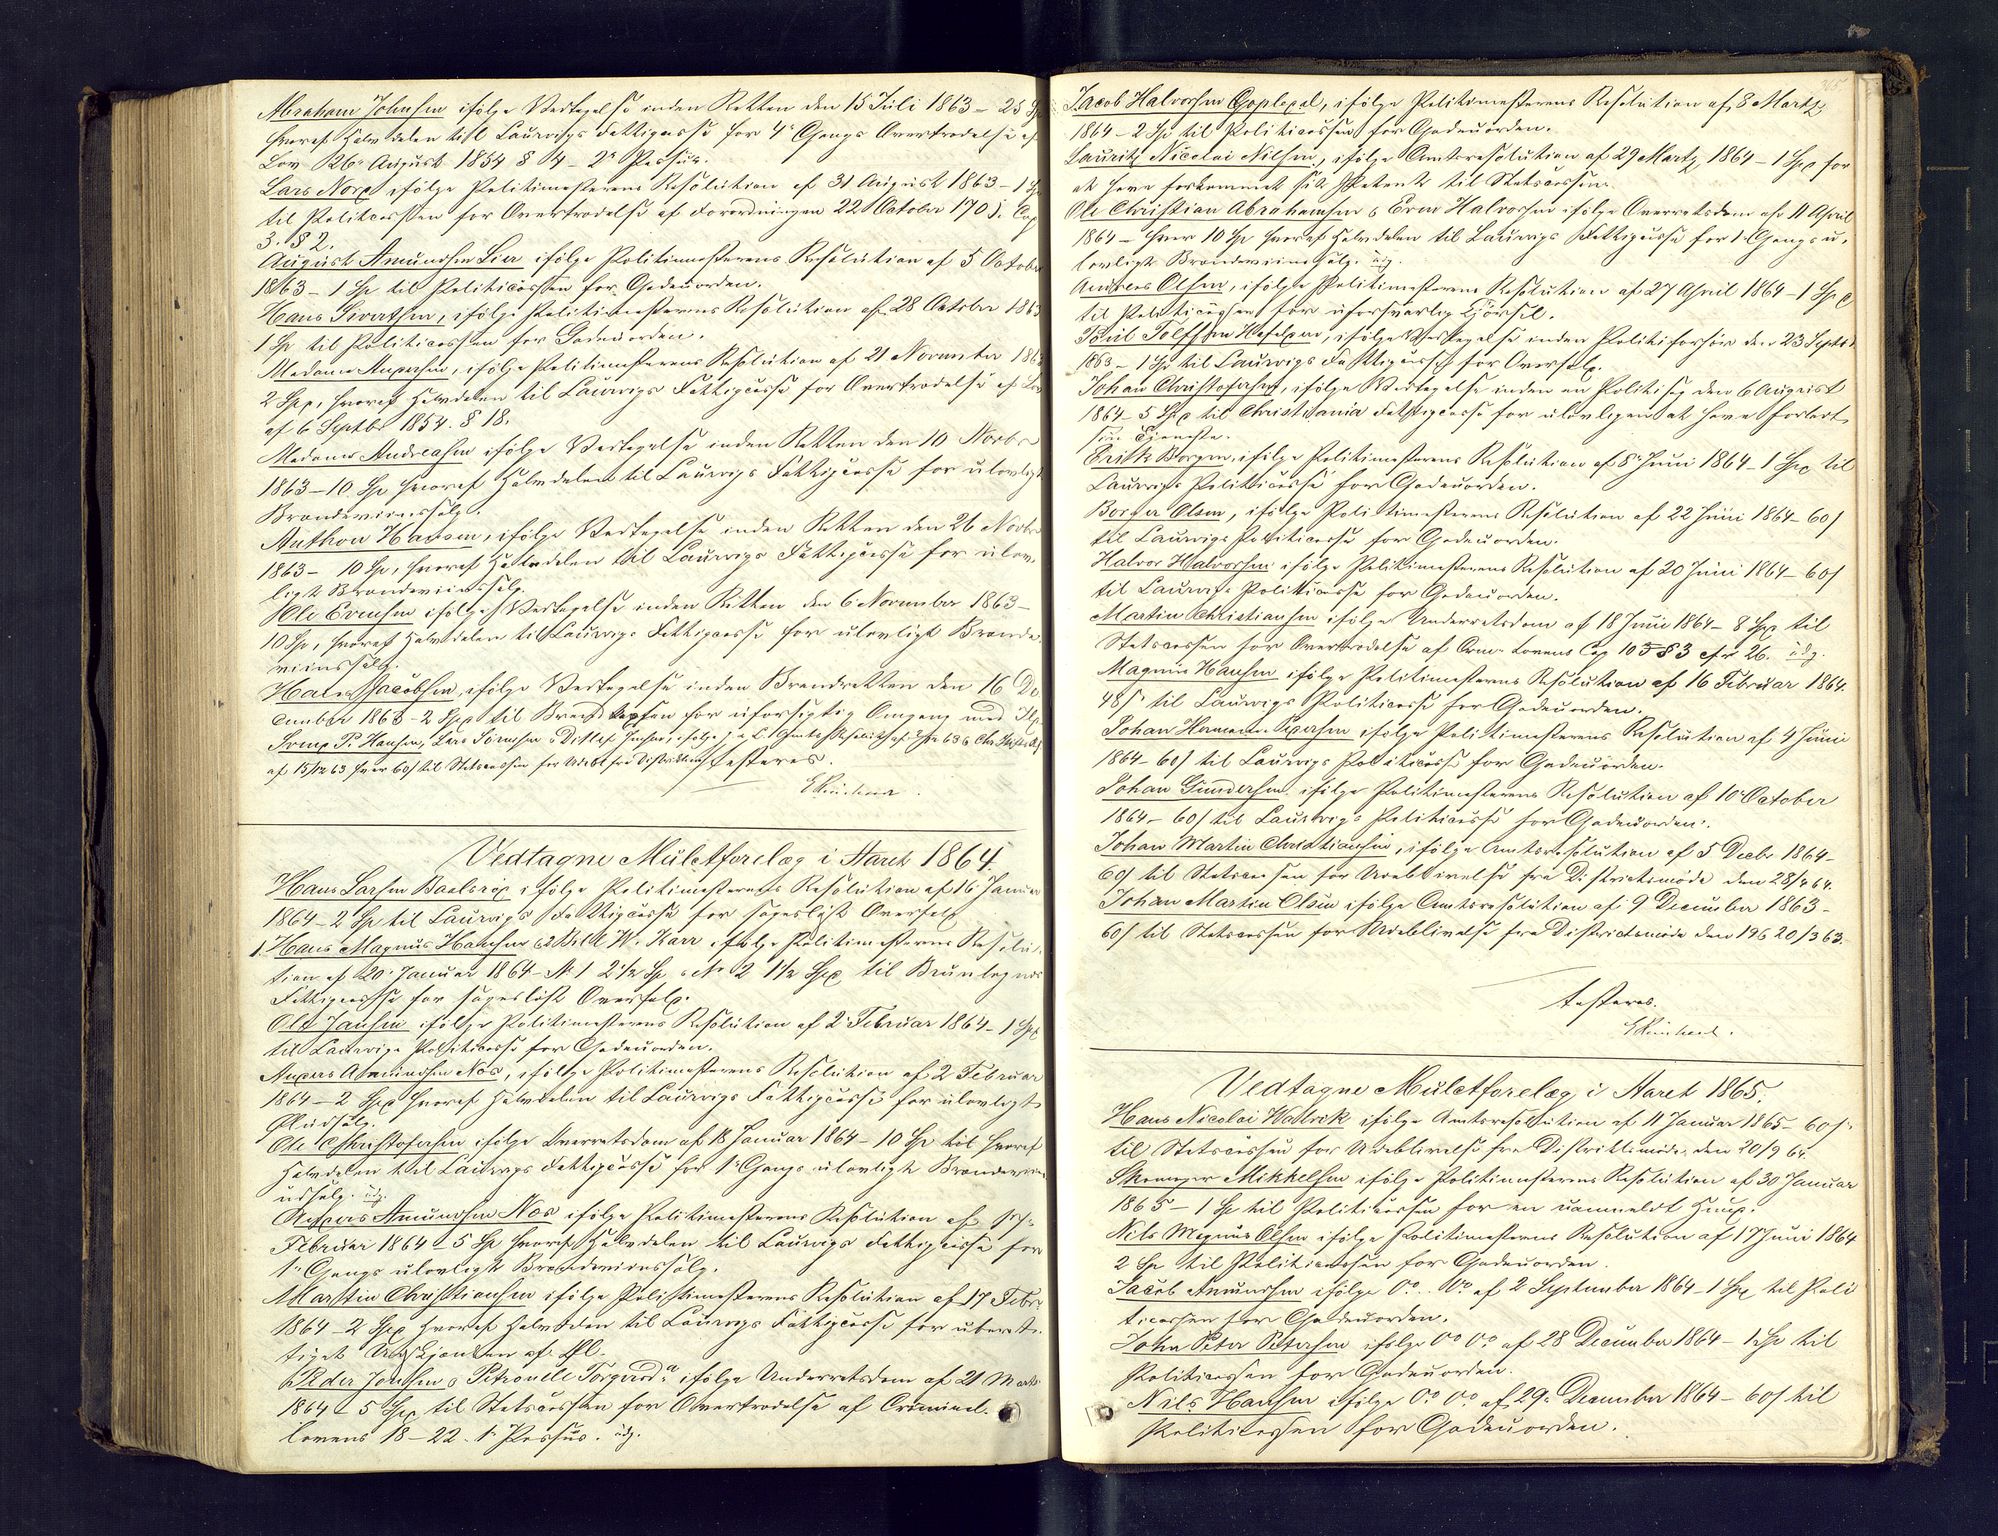 Abraham Johnsen ifølge Vedtagelse inden Retten den 15 Juli 1863 – 25 Sp
hvoraf Halvdelen til Laurvigs Fattigcasse for 4de Gangs Overtrædelse af
Lov 26 August 1854 § 4 – 2n Passus.
Lars Nord ifølge Politimesterens Resolution af 31 August 1863 – 1 Sp
til Politicassen for Overtrædelse af Forordningen 22 October 1701. Cap
3. § 2.
August Amundsen Lier ifølge Politimesterens Resolution af 5 October
1863 – 1 Sp til Politicassen for Gadeuorden.
Hans Sivertsen, ifølge Politimesterens Resolution af 28 October 1863
1 Sp til Politicassen for Gadeuorden.
Madame Andersen, ifølge Politimesterens Resolution af 21 November 1863
2 Spd, hvoraf Halvdelen til Laurvigs Fattigcasse for Overtrædelse af Lov
af 6 Septbr 1854. § 18.
Madame Andreasen ifølge Vedtagelse inden Retten den 10 Novbr
1863 – 10 Sp hvoraf Halvdelen til Laurvigs Fattigcasse for ulovligt
Brændeviinssalg.
Anthon Hansen, ifølge Vedtagelse inden Retten den 26 Novbr
1863 – 10 Sp, hvoraf Halvdelen til Laurvigs Fattigcasse for ulov-
ligt Brændeviinssalg.
Ole Evensen ifølge Vedtagelse inden Retten den 6 November 1863 –
10 Sp, hvoraf Halvdelen til Laurvigs Fattigcasse for ulovligt Brænde-
viinssalg.
Hans Jacobsen, ifølge Vedtagelse inden Brandretten den 16 De
cember 1863 – 2 Spd til Brandkassen for uforsigtig Omgang med Ild
P. Hansen, Lars Sørensen & Ditlef Jensen, ifølge
af 15/12 63 hver 60 s til Statscassen for Udebl. fra Distriktsm. testeres.
Vedtagne Mulctforelæg i Aaret 1864.
Hans Larsen Baalsrød ifølge Politimesterens Resolution af 16 Januar
1864 – 2 Sp til Laurvigs Fattigcasse for sagesløst Overfald
1. Hans Magnus Hansen & 2 W. Karr ifølge Politimesterens Resolu-
tion af 20 Januar 1864 – No 1 2½ Sp & No 2 1½ Spd til Brunlagnæs
Fattigcasse for sagesløst Overfald.
Ole Jansen ifølge Politimesterens Resolution af 2 Februar 1864 – 1 Spd
til Laurvigs Politicasse for Gadeuorden.
Anders Amundsen Næs, ifølge Politimesterens Resolution af 2 Februar
1864 – 2 Spd hvoraf Halvdelen til Laurvigs Fattigcasse for ulovligt
Øludsalg.
Ole Christophersen ifølge Overretsdom af 18 Januar 1864 – 10 Sp hvoraf
Halvdelen til Laurvigs Fattigcasse for 1ste Gangs ulovligt Brændeviins
udsalg. udg.
Anders Amundsen Næs ifølge Politimesterens Resolution af
Februar 1864 – 5 Sp hvoraf Halvdelen til Laurvigs Fattigcasse for
1ste Gangs ulovligt Brændeviinssalg.
Martin Christiansen ifølge Politimesterens Resolution af 17 Febr
1864 – 2 Spd hvoraf Halvdelen til Laurvigs Fattigcasse for uberet-
tiget Udskjænken af Øl.
Peder Jonsen & Petronelle Torgersd. ifølge Underretsdom af 21 Marts
1864 – 5 Spd til Statscassen for Overtrædelse af Criminal-
lovens 18 – 22. 1 Passus. udg.
Jacob Halvorsen Goplerød, ifølge Politimesterens Resolution af 8 Martz
1864 – 2 Sp til Politicassen for Gadeuorden.
Lauritz Nicolai Nilsen, ifølge Amtsresolution af 29 Martz 1864 – 1 Spd for
at have forkommet sit Patent til Statscassen.
Ole Christian Abrahamsen & Even Halvorsen ifølge Overretsdom af 11 April
1864 – hver 10 Sp hvoraf Halvdelen til Laurvigs Fattigcasse for 1 Gangs u-
lovligt Brændeviinssalg. udg.
Andreas Olsen, ifølge Politimesterens Resolution af 27 April 1864 – 1 Spd
til Politicassen for uforsvarlig Kjørsel.
Poul Tolfsen ifølge Vedtagelse inden Politiforhør den 23 Septbr
1863 – 1 Sp til Laurvigs Fattigcasse for Overfald.
Johan Christophersen, ifølge Vedtagelse inden en Politisag den 6 August
1864 – 5 Spd til Christiania Fattigcasse for ulovligen at have forladt
sin Tjeneste.
Erik Borgen, ifølge Politimesterens Resolution af 8 Juni 1864 – 1 Spd til
Laurvigs Politicasse for Gadeuorden.
Borger Olsen, ifølge Politimesterens Resolution af 22 Juni 1864 – 60 s
til Laurvigs Politicasse for Gadeuorden.
Halvor Halvorsen ifølge Politimesterens Resolution af 20 Juni 1864 – 60 s
til Laurvigs Politicasse for Gadeuorden.
Martin Christiansen ifølge Underretsdom af 18 Juni 1864 – 8 Spd til
Statscassen for Overtrædelse af Crim. Lovens Cap 10 § 3 cfr 26. udg.
Magnus Hansen ifølge Politimesterens Resolution af 16 Februar 1864.
48 s til Laurvigs Politicasse for Gadeuorden.
Johan Herman Pedersen ifølge Politimesterens Resolution af 4 Juni
1864 – 60 s til Laurvigs Politicasse for Gadeuorden.
Johan Gundersen ifølge Politimesterens Resolution af 10 October
1864 – 60 s til Laurvigs Politicasse for Gadeuorden.
Johan Martin Christiansen, ifølge Amtsresolution af 5 Decbr 1864 –
60 s til Statscassen for Udeblivelse fra Districtsmøde den 28/4 64.
Johan Martin Olsen ifølge Amtsresolution af 9 December 1863 –
60 s til Statscassen for Udeblivelse fra Districtsmøde den 19 & 20/3 63.
testeres.
Vedtagne Mulctforelæg i Aaret 1865.
Hans Nicolai Wadvik ifølge Amtsresolution af 11 Januar 1865 – 60 s
til Statscassen for Udeblivelse fra Distriktsmøde den 20/9 64.
Mikkelsen ifølge Politimesterens Resolution af 30 Januar
1865 – 1 Sp til Politicassen for en uanmeldt Hund.
Nils Magnus Olsen ifølge Politimesterens Resolution af 17 Juni 1864
2 Sp til Politicassen for Gadeuorden.
Jacob Amundsen ifølge Do Do af 2 September 1864 – 1 Spd til Poli
ticassen for Gadeuorden.
John Peter Petersen ifølge Do Do af 28 December 1864 – 1 Sp til
Politicassen for Gadeuorden.
Nils Hansen ifølge Do Do af 29 December 1864 – 60 s til
Politicassen for Gadeuorden.